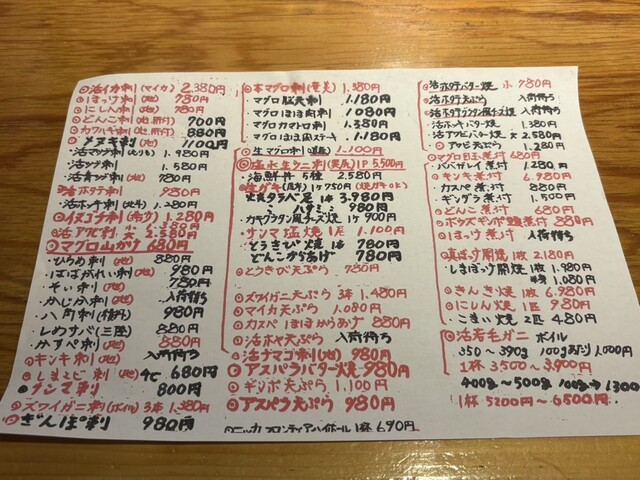 活イカ刺(マイカ) 2,380円
ほっけ刺(地) 780円
にしん刺(地) 780円
どんこ刺(地、肝付) 700円
カワハギ刺(地、肝付) 880円
メヌキ刺(地) 1100円
活マツブ刺 1,980円
活ツブ刺 1,580円
活青ツブ刺(地) 780円
ホタテ刺 980円
活ホッキ刺 1,280円
イヌゴチ刺 1,280円
活アワビ刺 大 2,380円
マグロ山かけ 680円
ひらめ刺 880円
ばばがれい刺 980円
そい刺(地) 780円
かじか刺(地) 入荷待ち
八角刺 980円
しめサバ 880円
かすべ刺(地) 880円
キンキ刺(地) 入荷待ち
しまえび刺(地) 4ヒ 680円
サンマ刺 800円
ズワイガニ刺(ボイル) 3本 1,380円
ぎんぽ刺 980円
本マグロ刺 1,380円
マグロ脳天刺 1,180円
マグロほほ肉刺 1,080円
マグロカマトロ刺 1,380円
マグロほほ肉ステーキ 1,180円
生マグロ刺 1,100円
塩水生ウニ刺 1P 5,500円
海鮮丼 5種 2,580円
生ガキ 1ケ 750円(焼ガキOK)
炭炙タラバ足 1本 3,980円
ハサミ 980円
カキグラタン風チーズ焼 1ケ 900円
サンマ塩焼 1尾 1,100円
とうきび焼 1本 780円
どんこからあげ 780円
とうきび天ぷら 780円
ズワイガニ天ぷら 3本 1,480円
マイカ天ぷら 1,080円
カスベほほからあげ 880円
活ホヤ天ぷら 入荷待ち
活ナマコ刺(地) 980円
アスパラバター焼 980円
ギンポ天ぷら 1,100円
アスパラ天ぷら 980円
ニッカフロンティアハイボール 1杯 690円
活ホタテバター焼 小 780円
活ホタテ天ぷら 入荷待ち
活ホタテグラタン風チーズ焼 入荷待ち
活ホッキバター焼 1,380円
活アワビバター焼 大 2,580円
アワビ天ぷら 1,280円
マグロ目玉煮付 680円
ババガレイ煮付 1,280円
キンキ煮付 6,980円
カスベ煮付 880円
ギンダラ煮付 1,500円
どんこ煮付 680円
ボウズギンポ煮付 880円
ほっけ煮付 入荷待ち
真ほっけ開焼 1枚 2,180円
しまほっけ開焼 1枚 1,980円
半身 1,080円
きんき焼 1枚 6,980円
にしん焼 1匹 980円
こまい焼 2匹 480円
活若毛ガニ ボイル
350～390g 100gあたり1,000円
1杯 3500～3900円
400g～500g 100g→1300
1杯 5200円～6500円